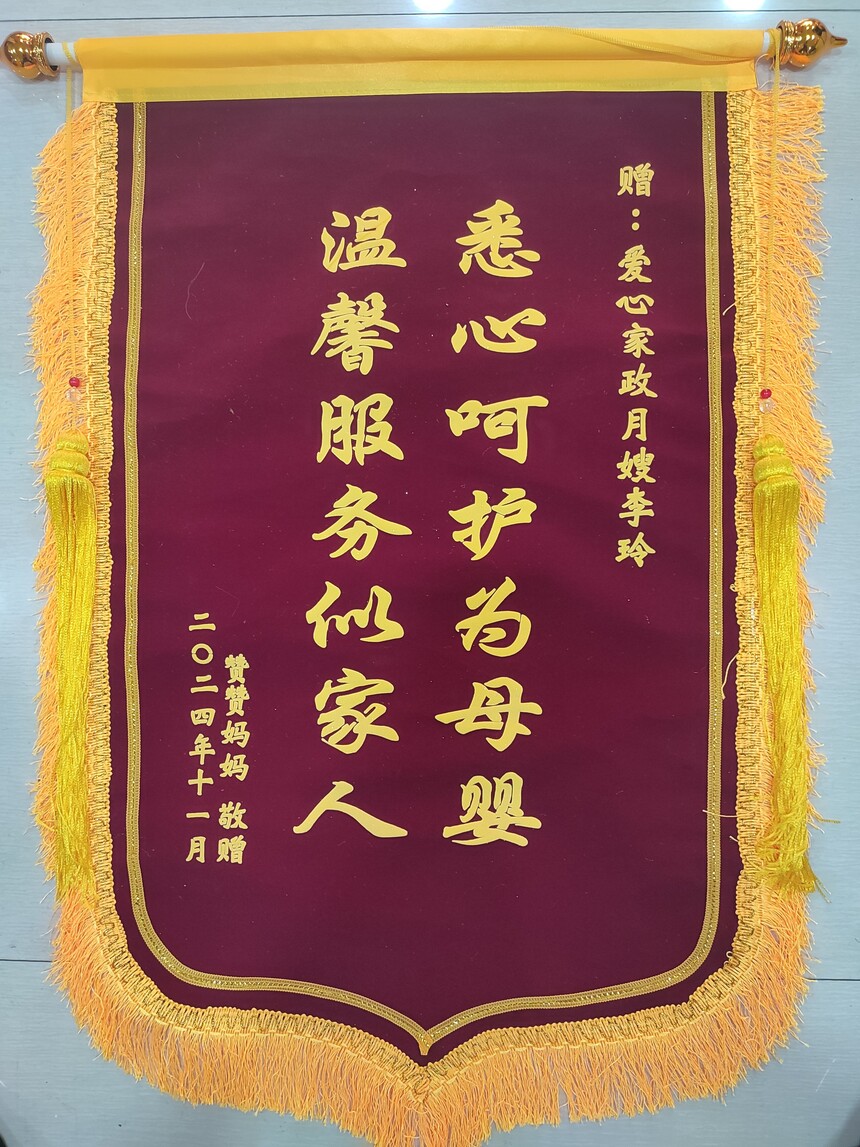 赠：爱心家政月嫂李玲
悉心呵护为母婴
温馨服务似家人
赞赞妈妈 敬赠
二〇二四年十一月